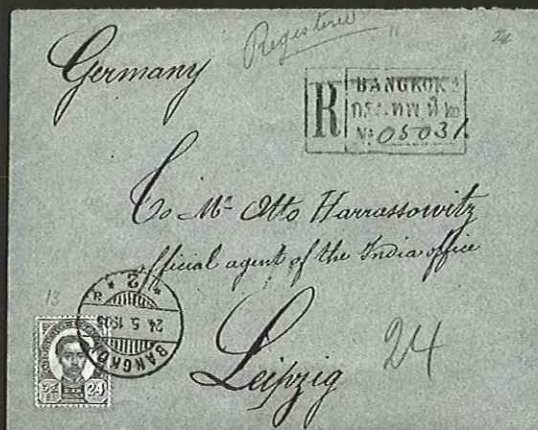 Germany
Registered
24
R
BANGKOK 2
กรุงเทพ ที่ ๒
No 05031
To Mr Otto Harrassowitz
official agent of the India office
Leipzig
24
13
BANGKOK
24.5.1903
* 2 *
24